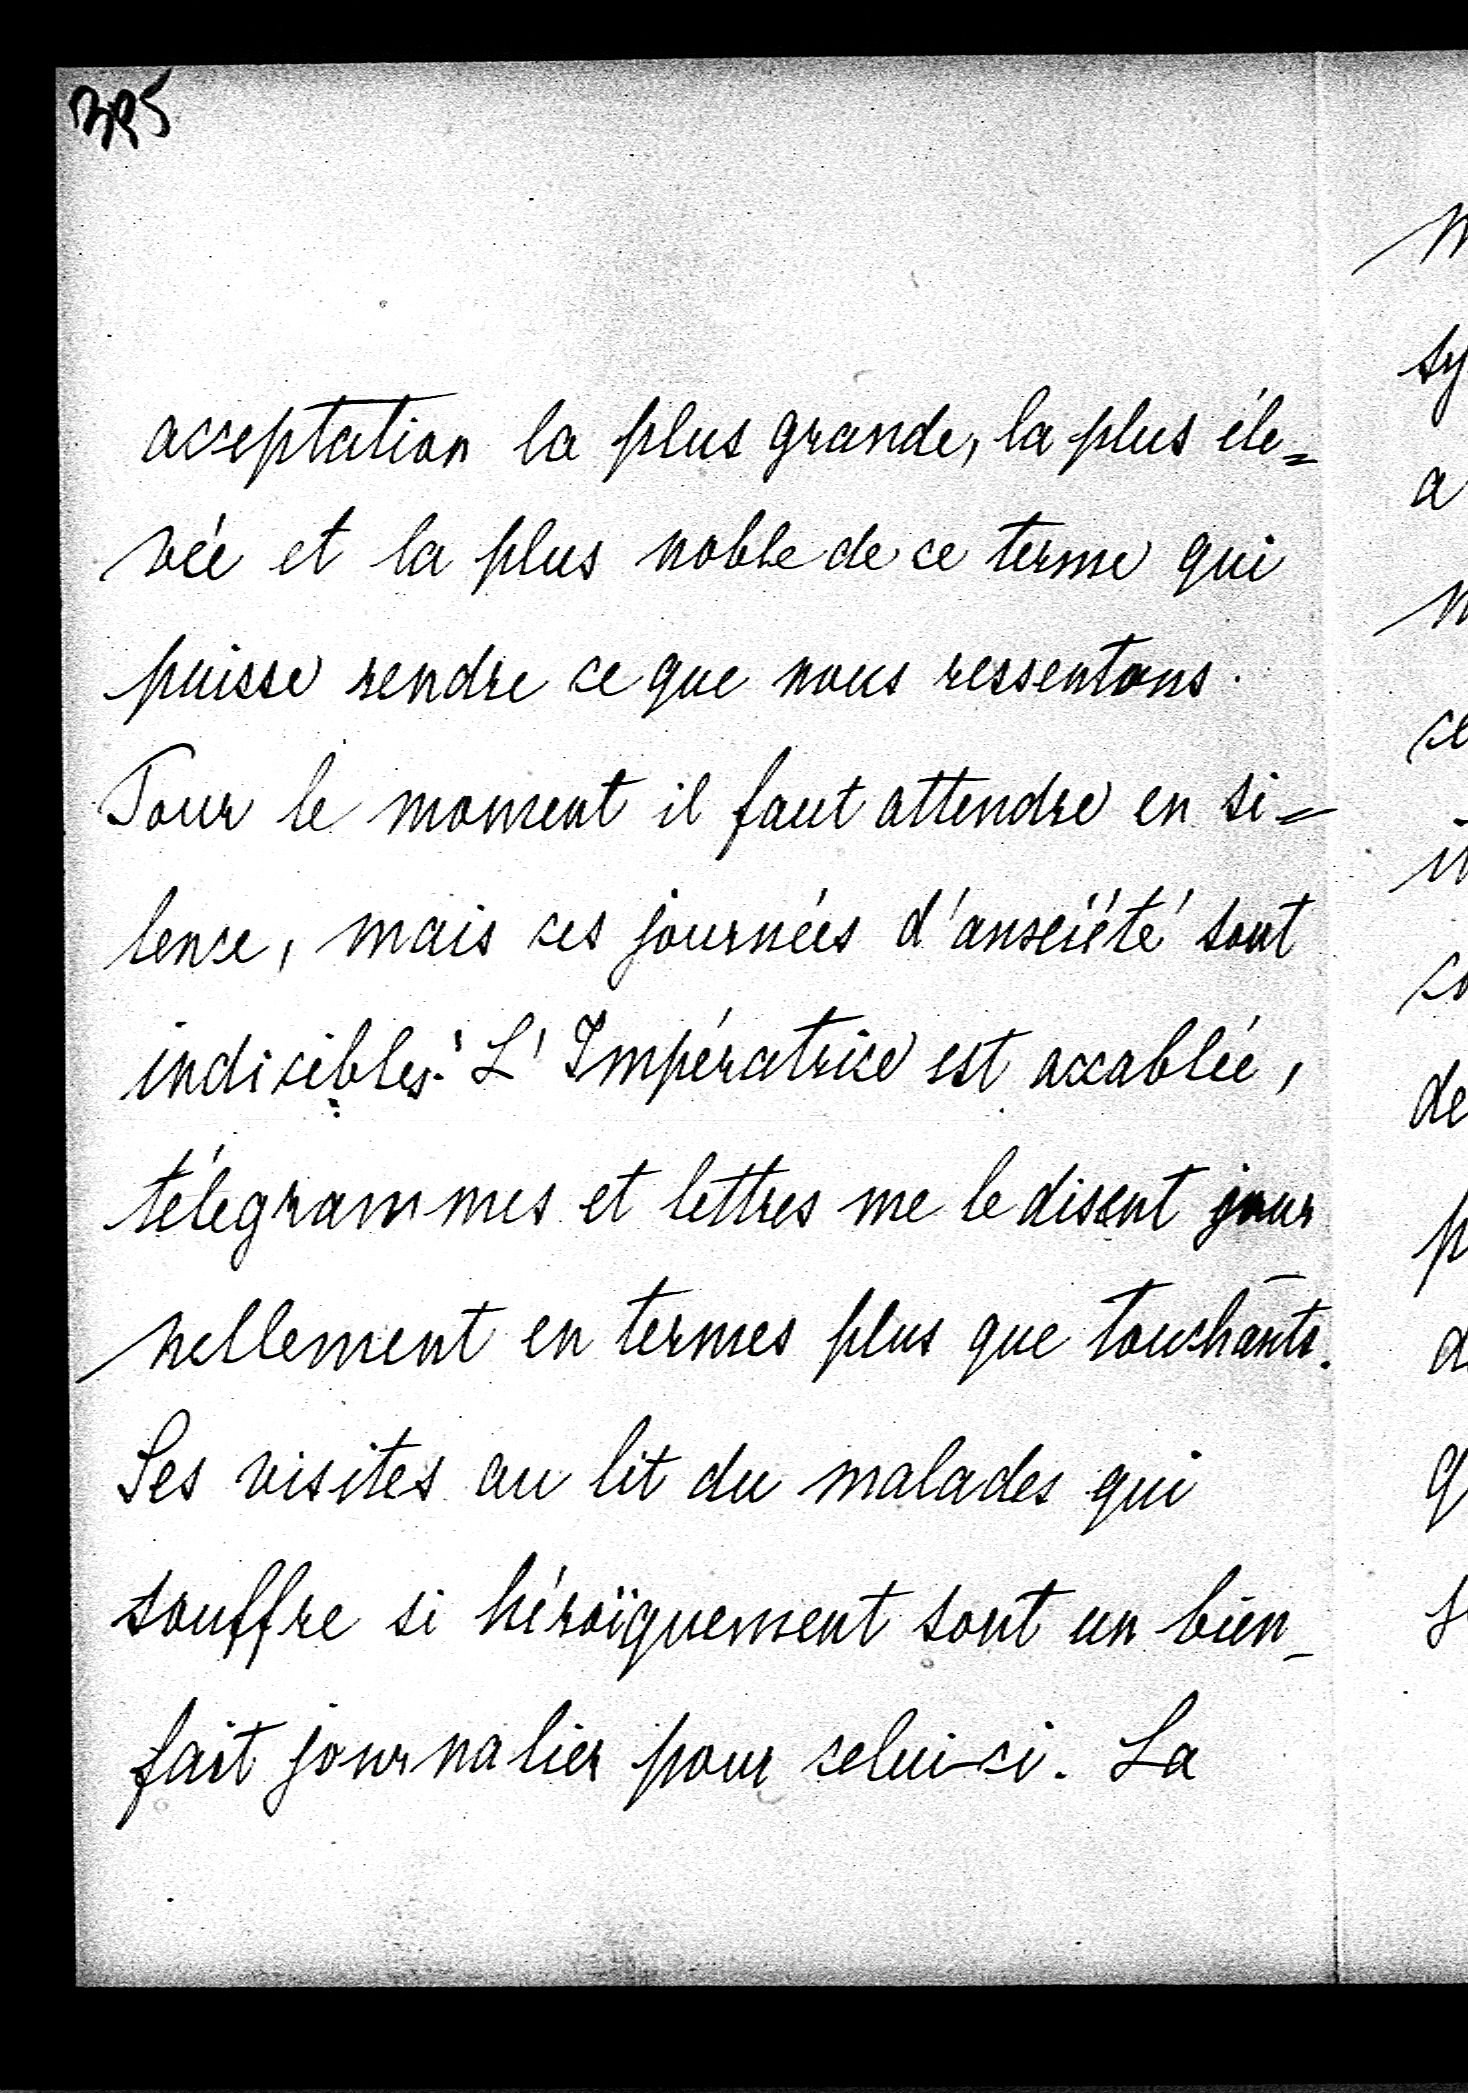 395
acceptation la plus grande, la plus éle=
vée et la plus noble de ce terme qui
puisse rendre ce que nous ressentons.
Pour le moment il faut attendre en si=
lence, mais ces journées d'anxiété sont
indicibles! L'Impératrice est accablée,
télégrammes et lettres me le disent jour
nellement en termes plus que touchants.
Ses visites au lit du malades qui
souffre si héroïquement sont un bien-
fait journalier pour celui-ci. La